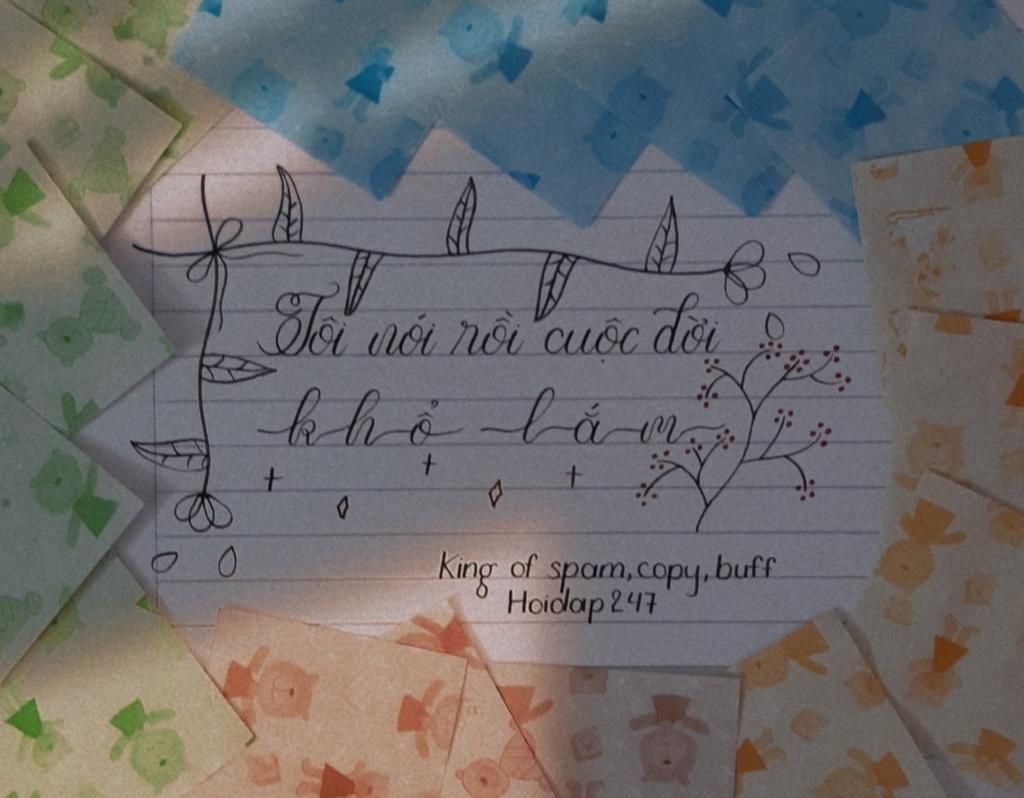 Tôi nói rồi cuộc đời
khổ lắm
King of spam, copy, buff
Hoidap247